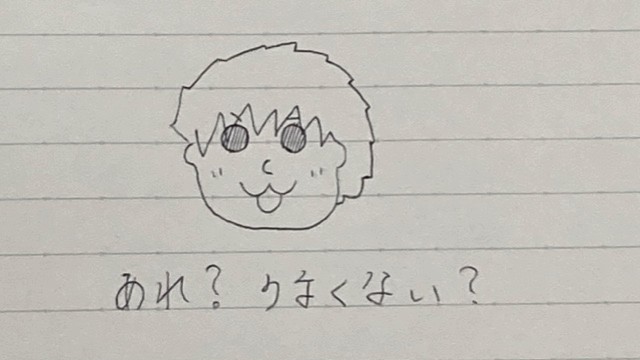 あれ？うまくない？